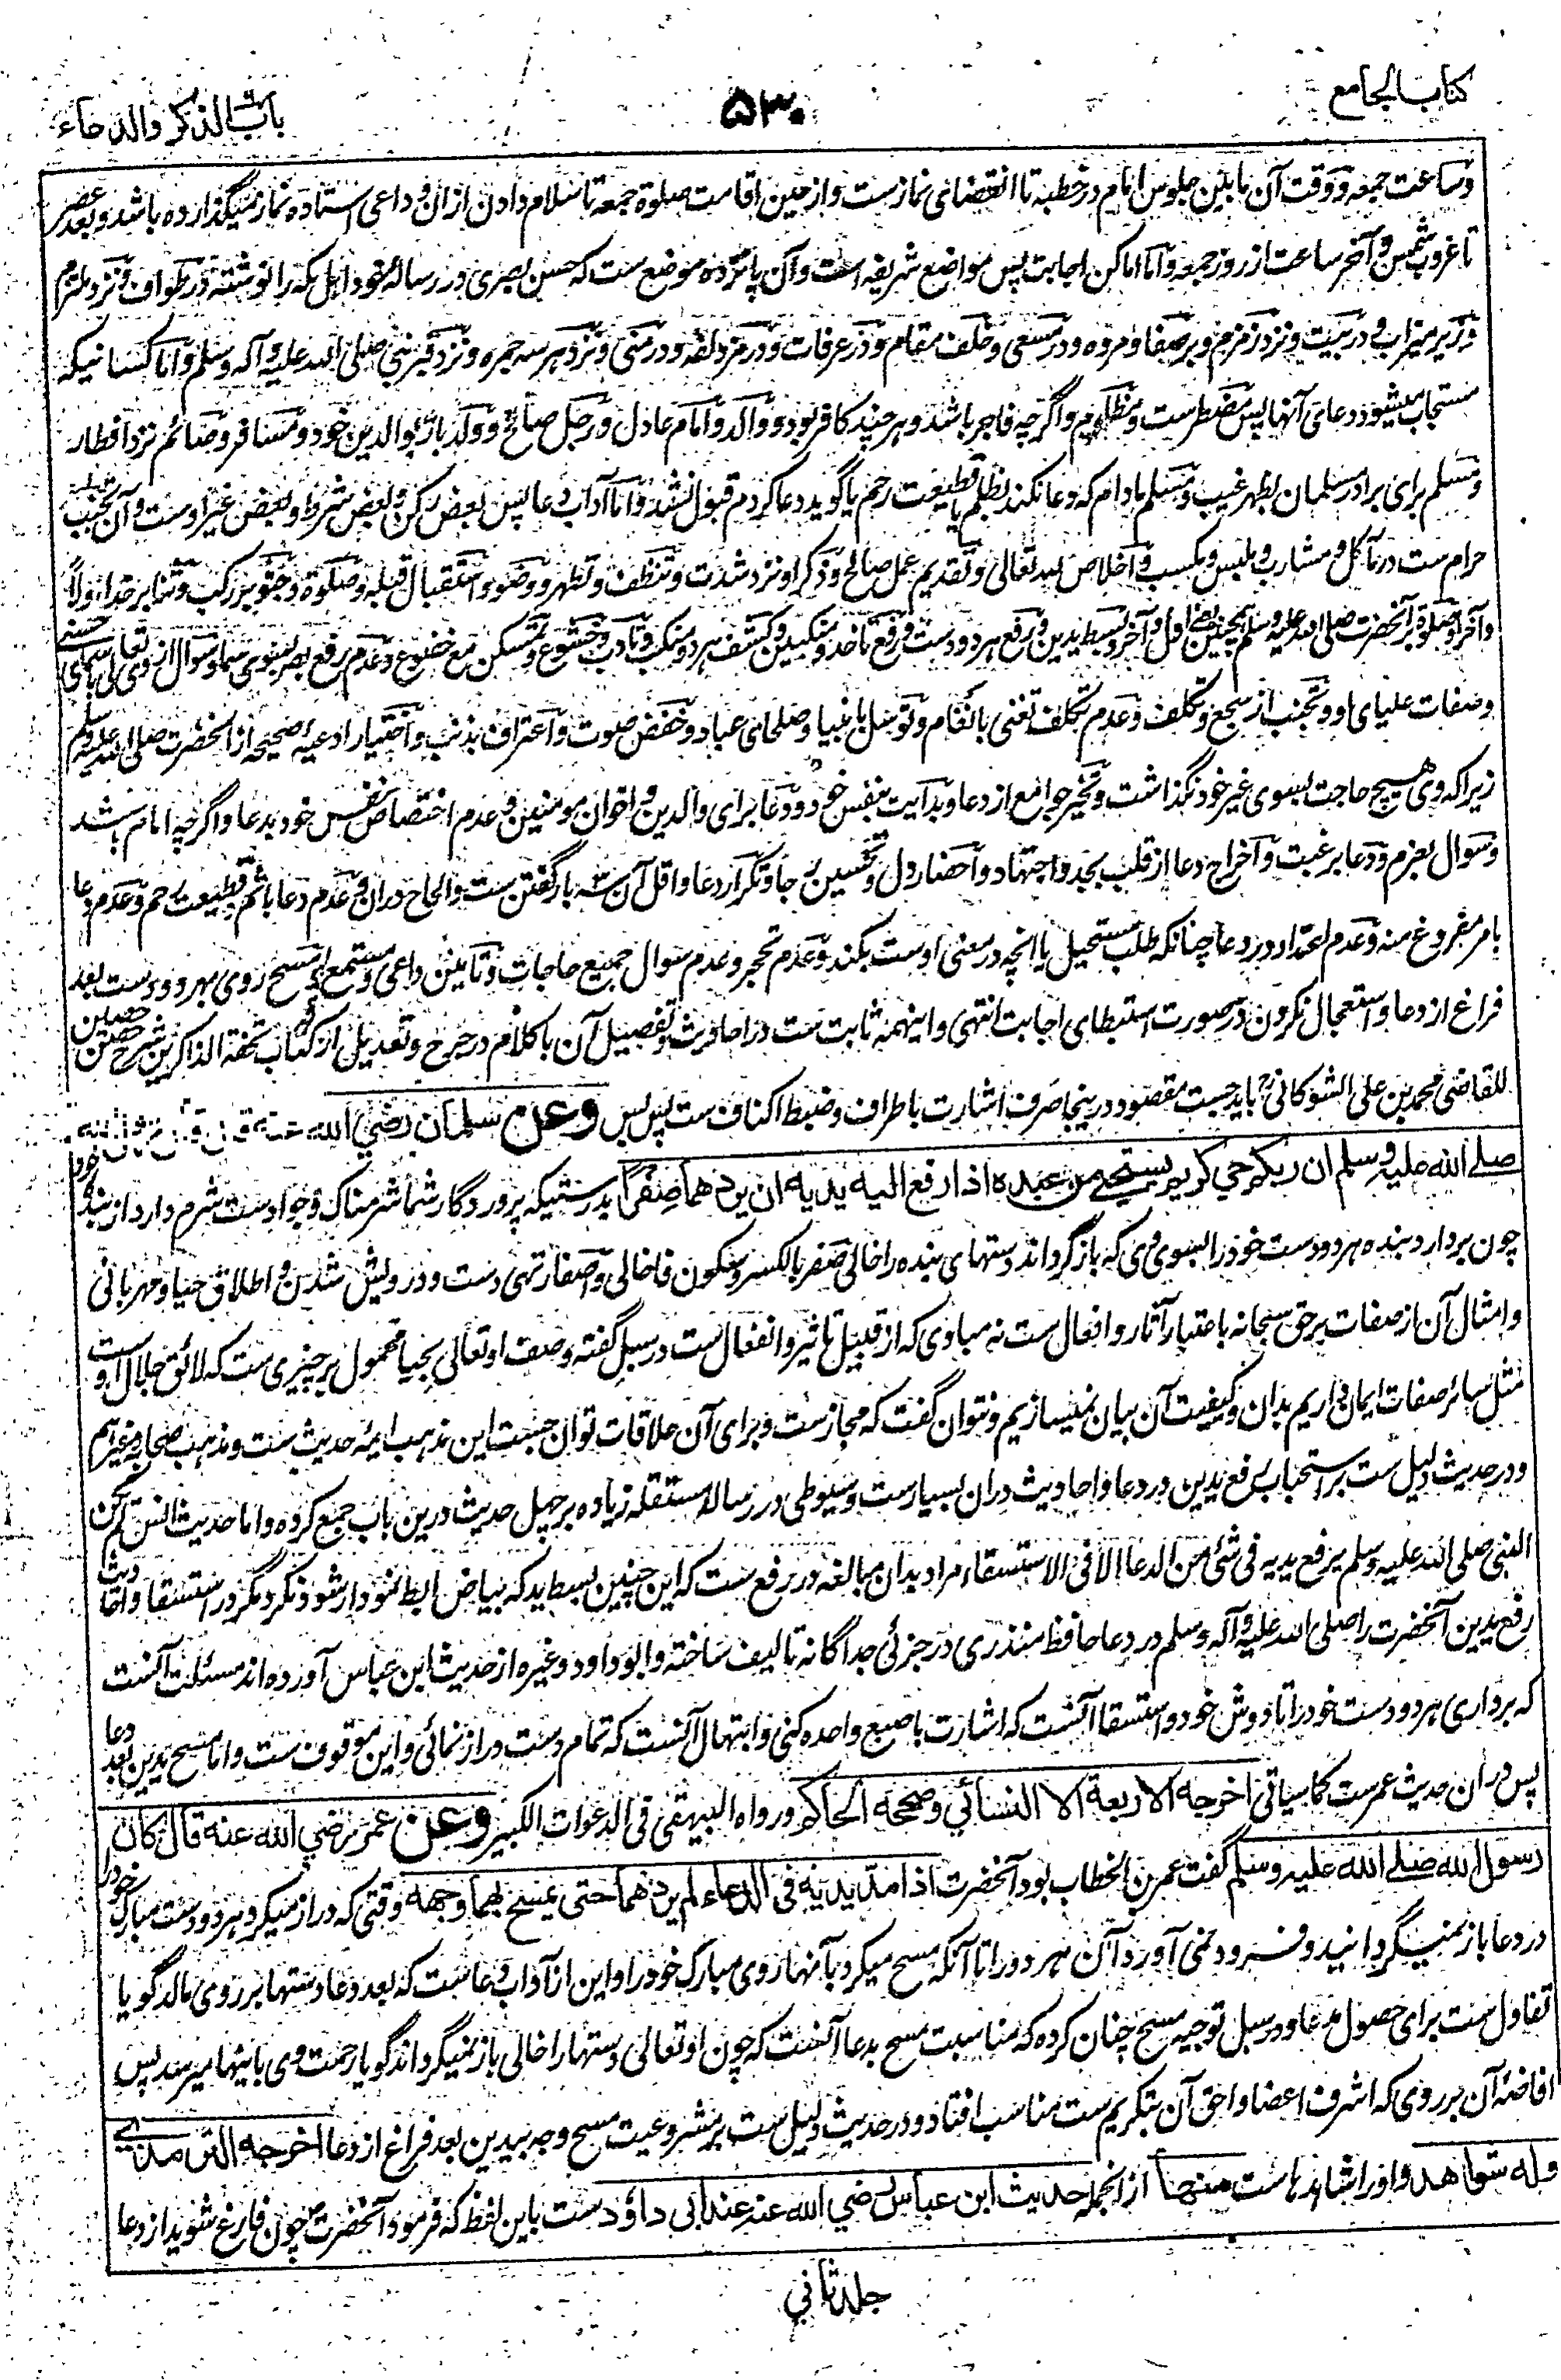 کتاب الجامع
۵۳۰
باب الذکر والدعاء
وساعت جمعه و وقت آن مابین جلوس امام در خطبه تا انقضای نمازست و از حین اقامت صلوة جمعه تا سلام دادن ازان و داعی استاده نماز میگذارده باشد و بعد عصر
تا غروب شمس و آخر ساعت از روز جمعه و اما اماکن اجابت پس مواضع شریفه است و آن پانزده موضع ست که حسن بصری در رساله خود اهل مکه را نوشته در طواف و نزد ملتزم
و زیر میزاب و در بیت و نزد زمزم و بر صفا و مروه و در مسعی و خلف مقام و در عرفات و در مزدلفه و در منی و نزد هر سه جمره و نزد قبر نبی صلی الله علیه و آله وسلم و اما کسانیکه
مستجاب میشود دعای آنها پس مضطرست و مظلوم و اگرچه فاجر باشد و هر چند کافر بود و والد و امام عادل و رجل صالح و ولد بار بوالدین خود و مسافر و صائم نزد افطار
و مسلم برای برادر مسلمان بظهر غیب و مسلم مادام که دعا نکند بظلم یا قطیعت رحم یا گوید دعا کردم قبول نشد و اما آداب دعا پس بعض رکن و بعض شرط و بعض غیر اوست و آن تجنب
حرام ست در مآکل و مشارب و ملبس و مکسب و اخلاص لله تعالی و تقدیم عمل صالح و ذکر او نزد شدت و تنظف و تطهر و وضو و استقبال قبله و صلوة و جثو بر رکب و ثنا بر خدا اولاً
و آخراً و صلوة بر آنحضرت صلی الله علیه وسلم همچنین اول و آخر و بسط یدین و رفع هر دو دست و رفع تا حذو منکبین و کشف هر دو منکب و تادب و خشوع و تمسکن مع خضوع و عدم رفع بصر بسوی سما و سوال از وی تعالی باسمای حسنی
وصفات علیای او و تجنب از سجع و تکلف و عدم تکلف تغنی بانغام و توسل بانبیا و صلحای عباد و خفض صوت و اعتراف بذنب و اختیار ادعیه صحیحه از آنحضرت صلی الله علیه وسلم
زیرا که وی هیچ حاجت بسوی غیر خود نگذاشت و تخیر جوامع از دعا و بدایت بنفس خود و دعا برای والدین و اخوان مومنین و عدم اختصاص نفس خود بدعا و اگرچه امام باشد
و سوال بعزم و دعا برغبت و اخراج دعا از قلب بجد و اجتهاد و احضار دل و تحسین رجا و تکرار دعا و اقل آن سه بار گفتن ست و الحاح دران و عدم دعا باثم و قطیعت رحم و عدم دعا
بامر مفروغ منه و عدم اعتدا در دعا چنانکه طلب مستحیل یا انچه در معنی اوست بکند و عدم تحجر و عدم سوال جمیع حاجات و تامین داعی و مستمع و مسح روی بهر دو دست بعد
فراغ از دعا و استعجال نکردن در صورت استبطای اجابت انتهی و اینهمه ثابت ست در احادیث و تفصیل آن با کلام در جرح و تعدیل از کتاب تحفة الذاکرین شرح حصن حصین
للقاضی محمد بن علی الشوکانی باید جست مقصود در ینجا صرف اشارت باطراف و ضبط اکناف ست پس بس وعن سلمان رضي الله عنه
صلے الله علیه وسلم ان ربکم حي کریم یستحیی من عبده اذا رفع الیه یدیه ان یردهما صفرا بدرستیکه پروردگار شما شرمناک و جواد ست شرم دارد از بنده خود
چون بردارد بنده هر دو دست خود را بسوی وی که باز گرداند دستهای بنده را خالی صفر بالکسر و سکون فا خالی و اصفار تهی دست و درویش شدن و اطلاق حیا و مهربانی
و امثال آن از صفات بر حق سبحانه باعتبار آثار و افعال ست نه مبادی که از قبیل تاثیر و انفعال ست در سبل گفته وصف او تعالی بحیا محمول بر چیزی ست که لائق جلال اوست
مثل سائر صفات ایمان داریم بدان و کیفیت آن بیان نمیسازیم و نتوان گفت که مجازست و برای آن علاقات توان جست این مذهب ایمه حدیث ست و مذهب صحابه و غیرهم
و در حدیث دلیل ست بر استحباب رفع یدین در دعا و احادیث دران بسیارست و سیوطی در رساله مستقله زیاده بر چهل حدیث درین باب جمع کرده و اما حدیث انس لم یکن
النبی صلی الله علیه وسلم یرفع یدیه فی شئ من الدعا الا فی الاستسقاء مراد بدان مبالغه در رفع ست که این چنین بسط ید که بیاض ابط نمودار شود نکرد مگر در استسقا و احادیث
رفع یدین آنحضرت را صلی الله علیه و آله وسلم در دعا حافظ منذری در جزئی جداگانه تالیف ساخته و ابو داود و غیره از حدیث ابن عباس آورده اند مسئلت آنست
که برداری هر دو دست خود را تا دوش خود و استسقا آنست که اشارت باصبع واحده کنی و ابتهال آنست که تمام دست دراز نمائی و این موقوف ست و اما مسح یدین بعد دعا
پس دران حدیث عمرست کما سیاتی اخرجه الاربعة الا النسائي وصححه الحاکم و رواه البیهقی فی الدعوات الکبیر وعن عمر رضي الله عنه قال کان
رسول الله صلے الله علیه وسلم گفت عمر بن الخطاب بود آنحضرت اذا مد یدیه فی الدعاء لم یردهما حتی یمسح بهما وجهه وقتی که دراز میکرد هر دو دست مبارک خود را
در دعا باز نمیگردانید و فرود نمی آورد آن هر دو را تا آنکه مسح میکرد بآنها روی مبارک خود را و این از آداب دعاست که بعد دعا دستها بر روی مالد گویا
تفاول ست برای حصول مدعا و در سبل توجیه مسح چنان کرده که مناسبت مسح بدعا آنست که چون او تعالی دستها را خالی باز نمیگرداند گویا رحمت وی باینها میرسد پس
افاضهٔ آن بر روی که اشرف اعضا و احق آن بتکریم ست مناسب افتاد و در حدیث دلیل ست بر مشروعیت مسح وجه بیدین بعد فراغ از دعا اخرجه الترمذي
وله شواهد و او را شاهدهاست منها ازانجمله حدیث ابن عباس رضي الله عنه عند ابی داؤد ست باین لفظ که فرمود آنحضرت چون فارغ شوید از دعا
جلد ثاني